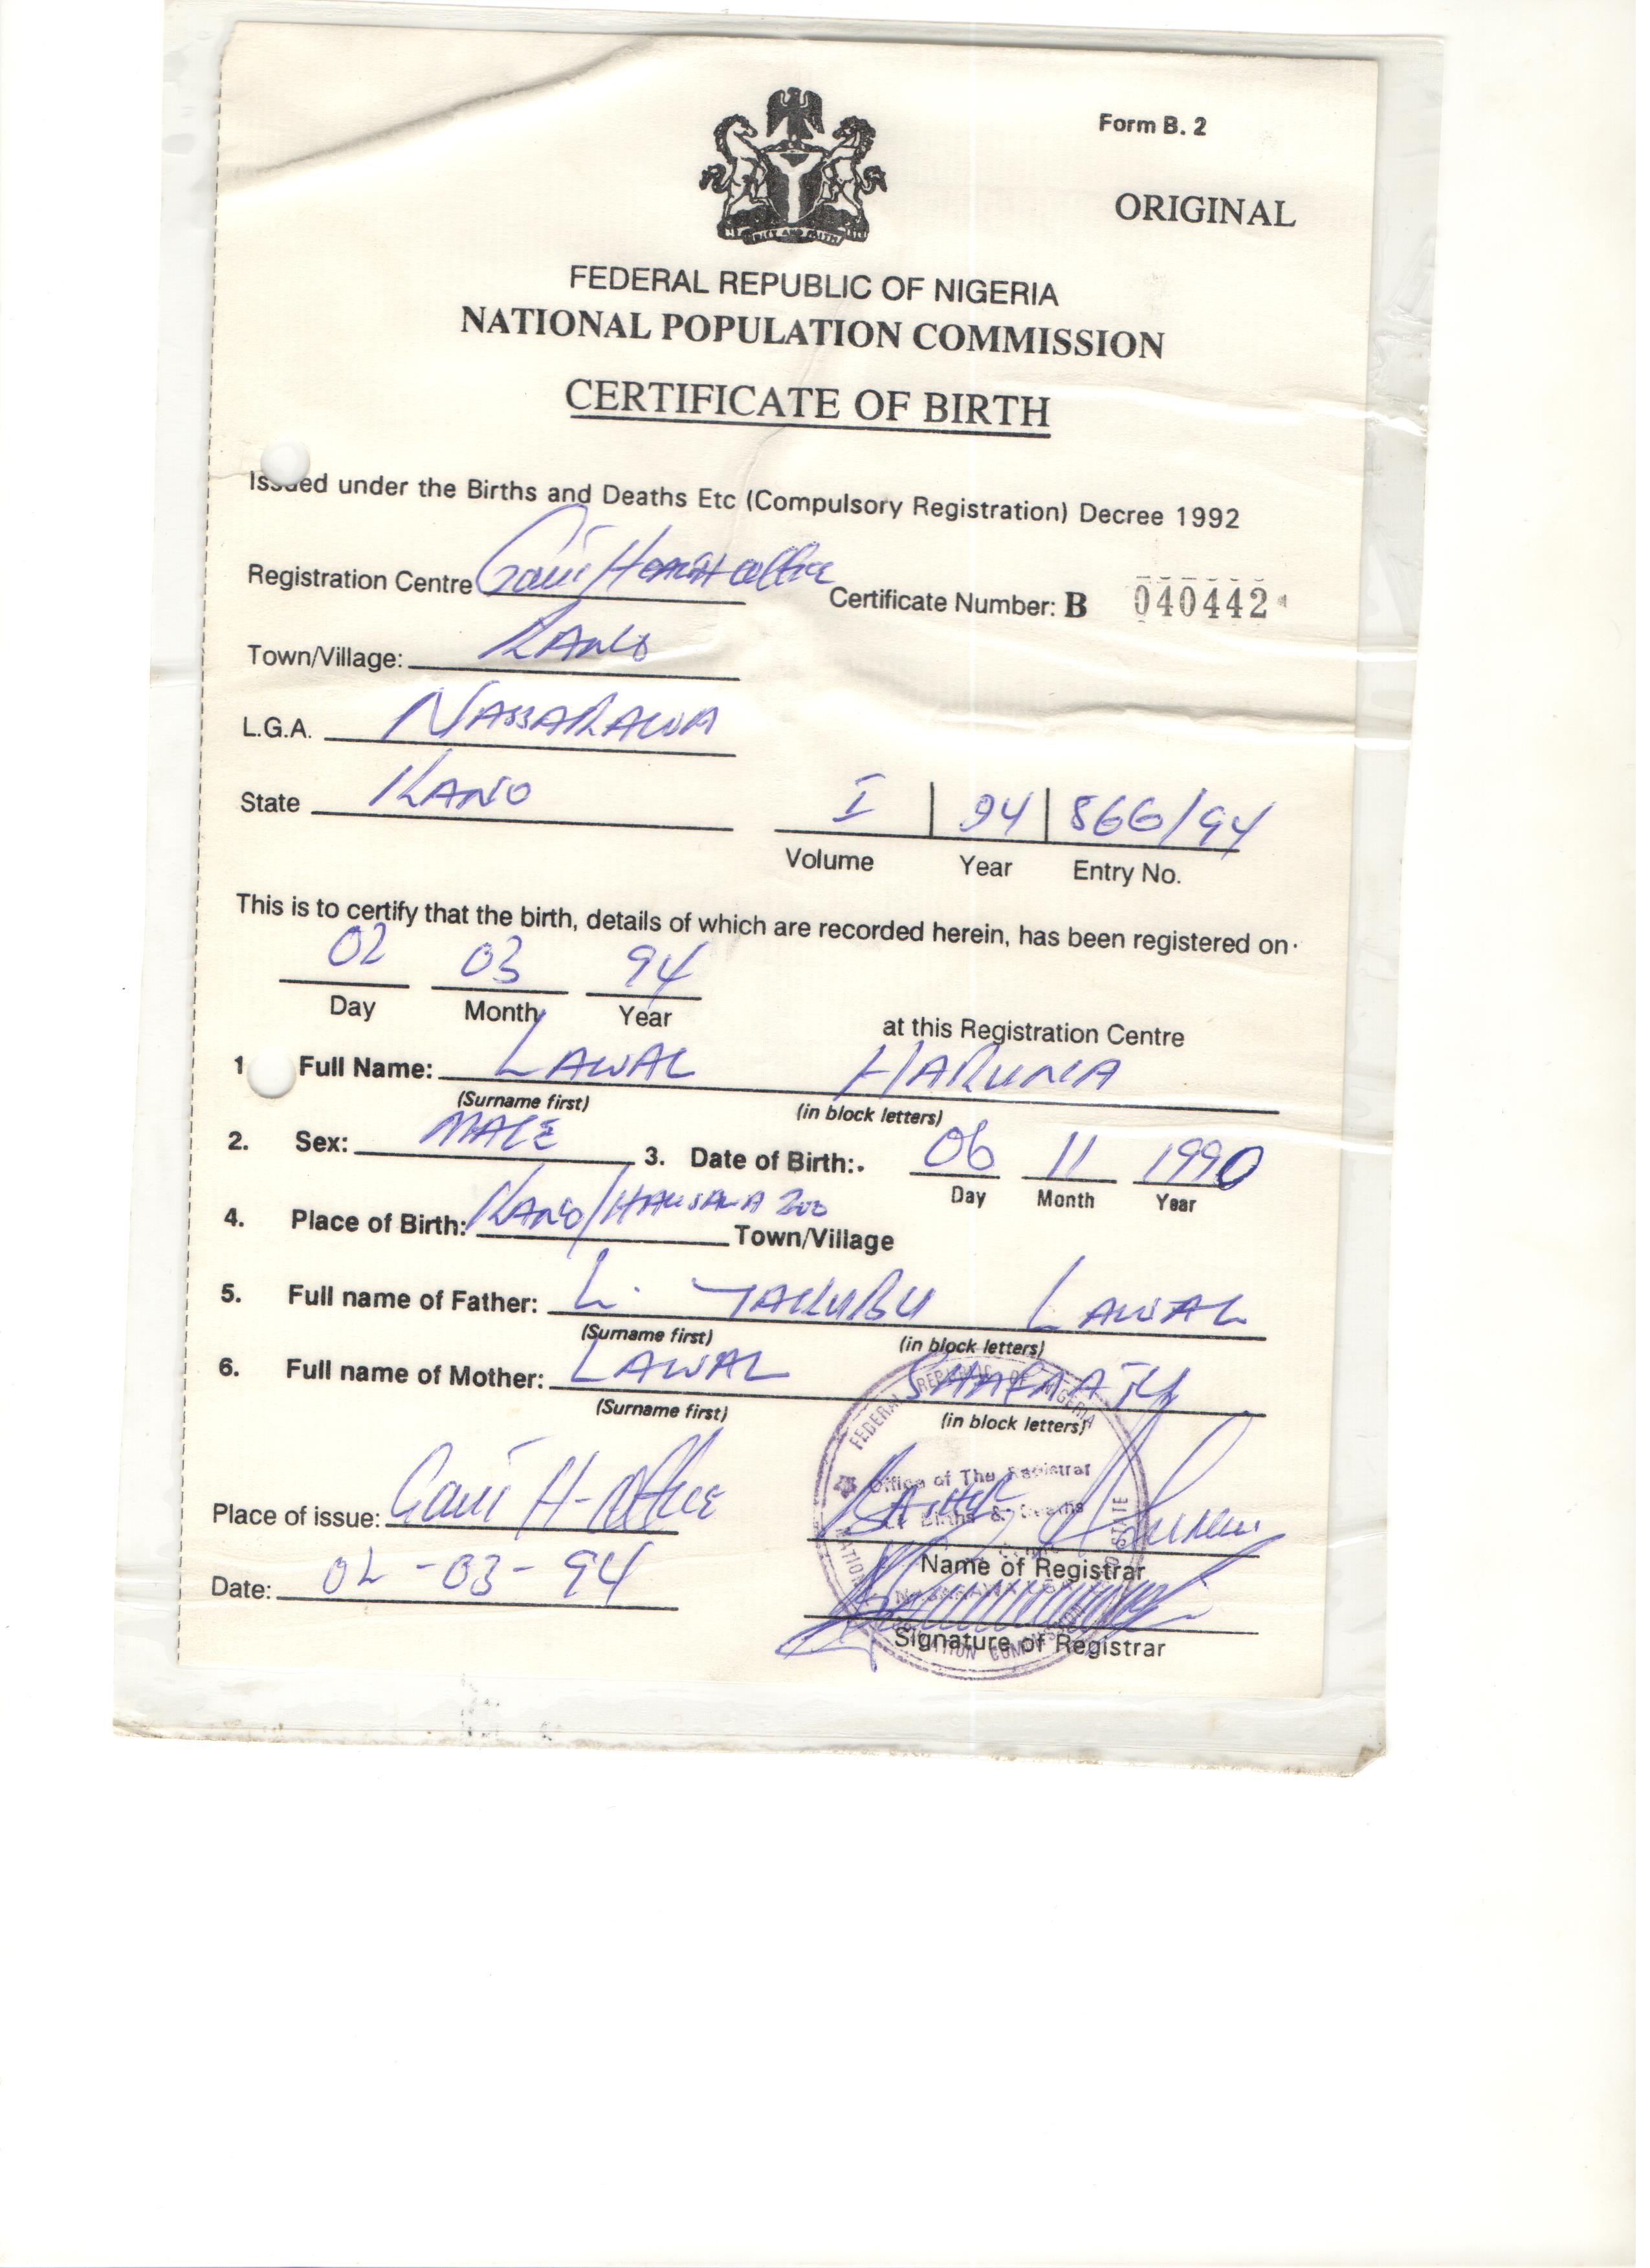 Form B. 2
ORIGINAL
FEDERAL REPUBLIC OF NIGERIA
NATIONAL POPULATION COMMISSION
CERTIFICATE OF BIRTH
Issued under the Births and Deaths Etc (Compulsory Registration) Decree 1992
Registration Centre
Certificate Number: B 040442
Town/Village: KANO
L.G.A. NASSARAWA
State KANO
I 94 866/94
Volume Year Entry No.
This is to certify that the birth, details of which are recorded herein, has been registered on
02 03 94
Day Month Year
at this Registration Centre
1 Full Name: LAWAL HARUNA
(Surname first) (in block letters)
2. Sex: MALE 3. Date of Birth: 06 11 1990
Day Month Year
4. Place of Birth: KANO/ Town/Village
5. Full name of Father: L. YAKUBU LAWAL
(Surname first) (in block letters)
6. Full name of Mother: LAWAL
(Surname first) (in block letters)
FEDERAL REPUBLIC OF NIGERIA
Office of The Registrar
Births & Deaths
Place of issue:
Name of Registrar
Date: 02-03-94
Signature of Registrar